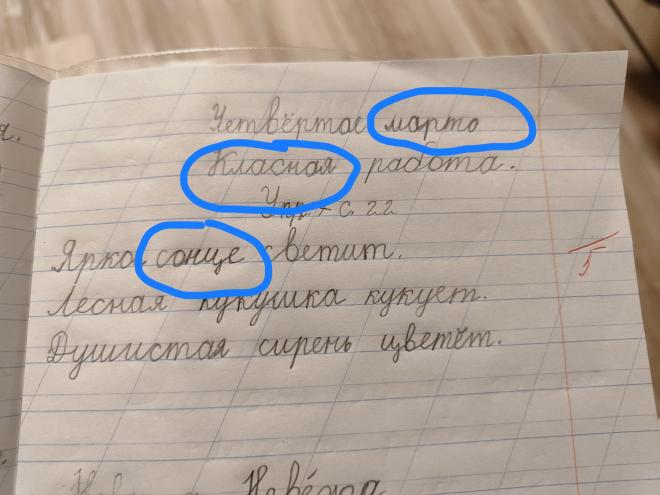 я.
Четвёртое марто
Класная работа.
Упр. с. 22
Ярко сонце светит.
5
Лесная кукушка кукует.
Душистая сирень цветёт.
Невежа